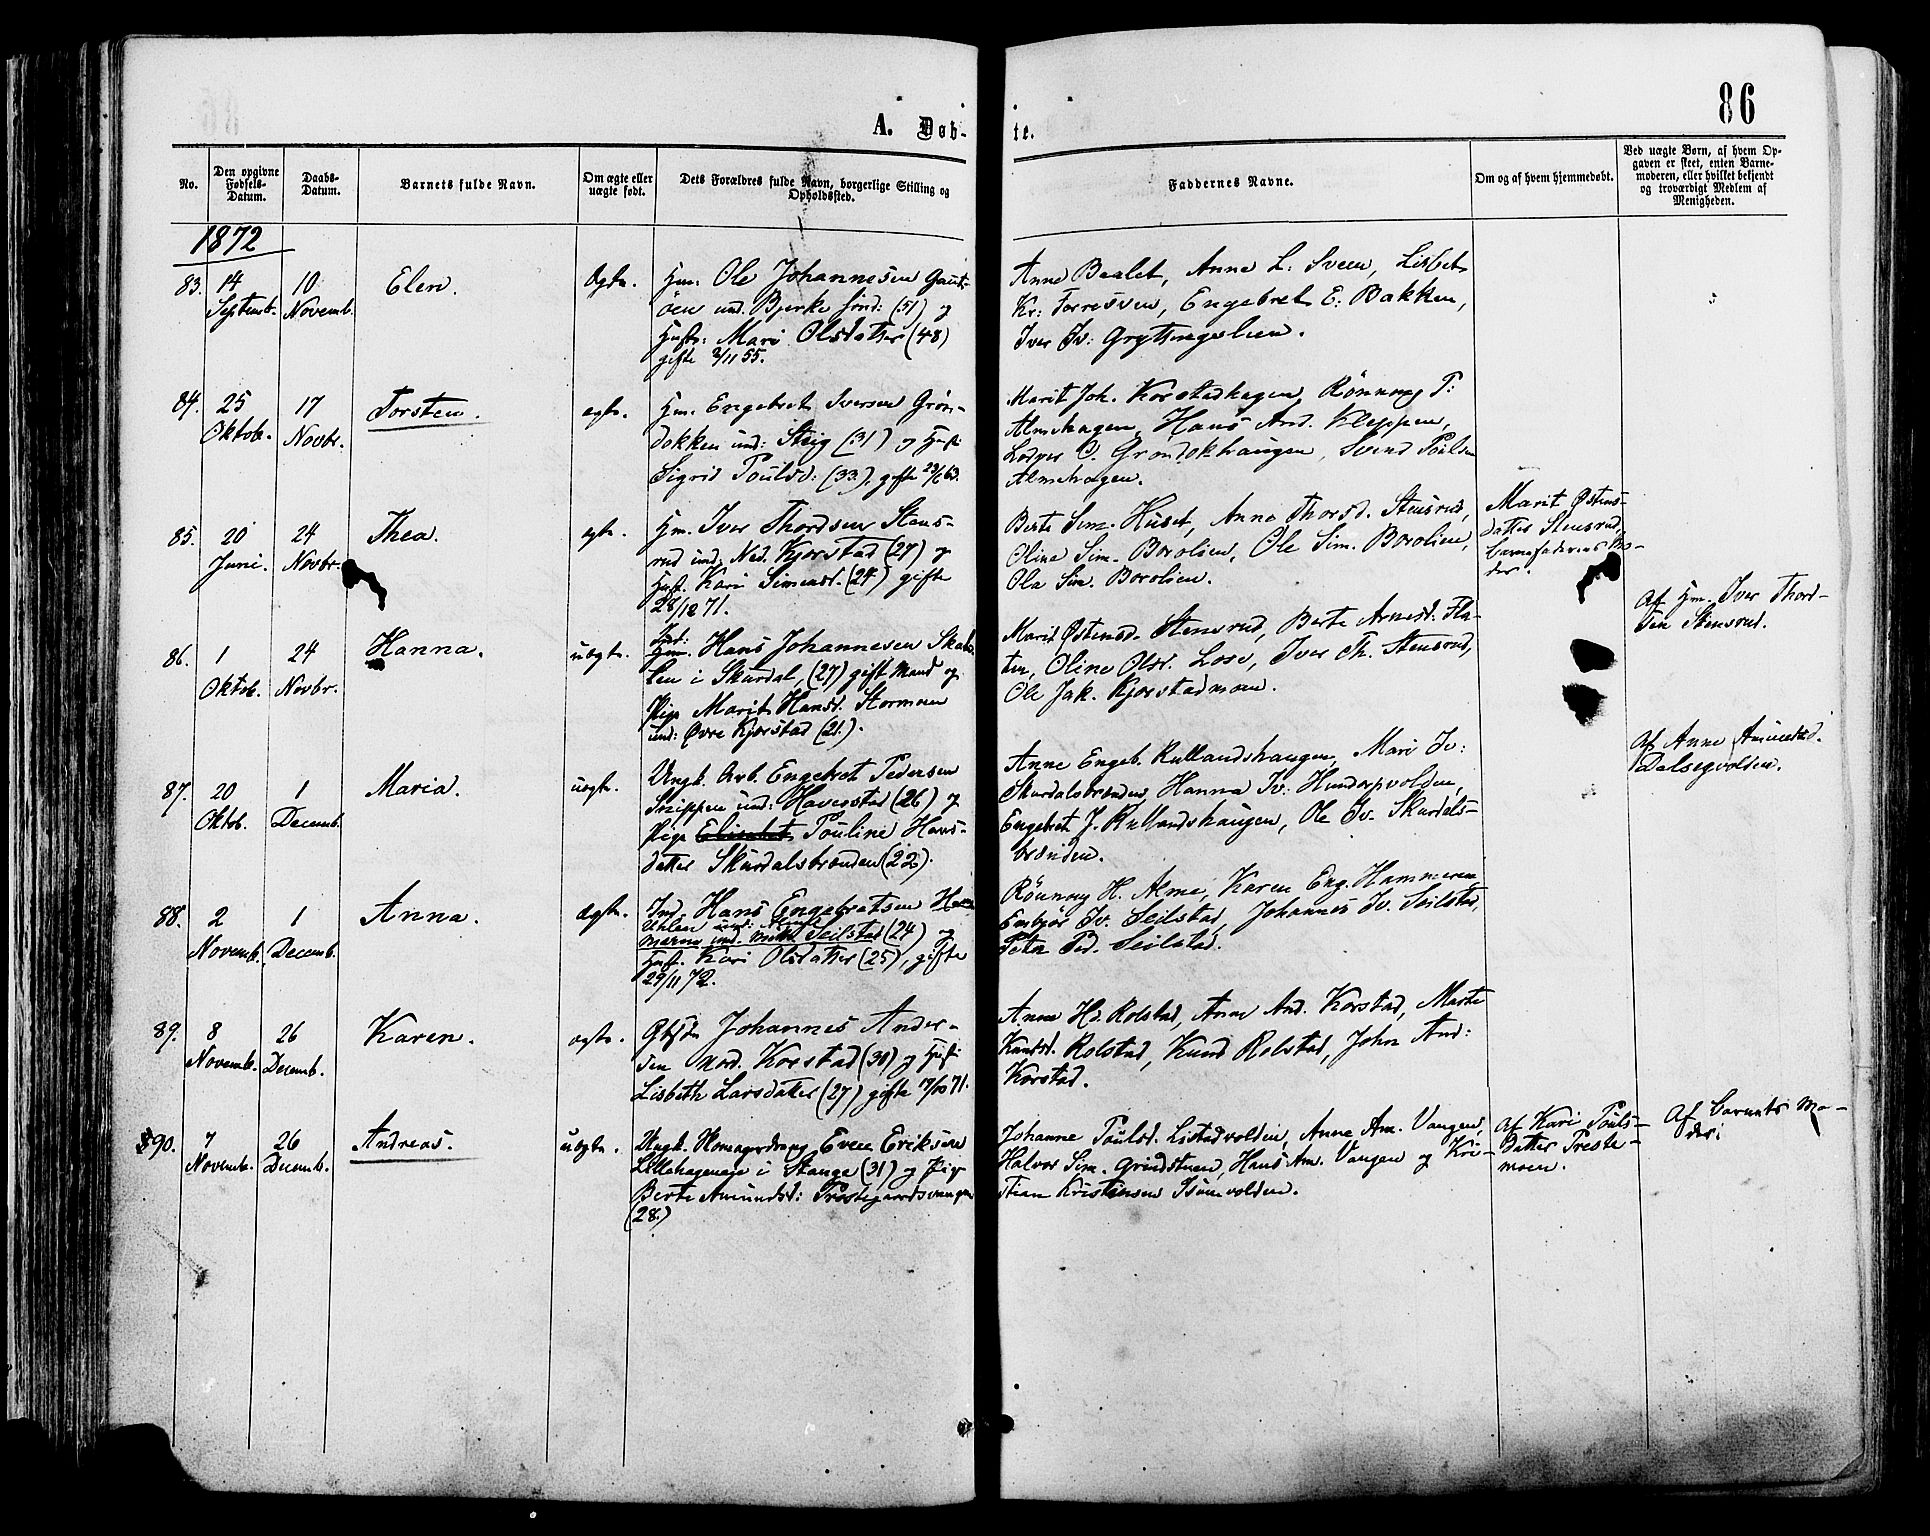 86
A. Døb-
te.
No.
Den opgivne
Fødsels-
Datum.
Daabs-
Datum.
Barnets fulde Navn.
Om ægte eller
uægte født.
Dets Forældres fulde Navn, borgerlige Stilling og
Opholdssted.
Faddernes Navne.
Om og af hvem hjemmedøbt.
Ved uægte Børn, af hvem Op-
gaven er skeet, enten Barne-
moderen, eller hvilket bekjendt
og troværdigt Medlem af
Menigheden.
1872
83.
14
Septemb.
10
Novemb.
Elen.
Ægte.
Hm. Ole Johannesen
öen und. Bjerke (51) og
Hust: Mari Olsdatter (48)
gifte 2/11 55.
Anne Baalet, Anne L: Sveen, Lisbet
Kr: Engebret E: Bakken,
Iver Iv: Gryttingslien.
84.
25
Oktob.
17
Novbr.
Torsten.
ægte.
Hm. Engebret Iversen Grön-
dokken und: Steig (31) og Hust:
Sigrid Poulsd: (33), gifte 23/6 63.
Marit Joh. Korstadhagen, Rönnoug P:
Almehagen, Hans And. Kleppen,
O. Grondokhaugen, Svend Pouls.
Almehagen.
85.
20
Juni.
24
Novbr.
Thea.
ægte.
Hm. Iver Thordsen Stens-
rud und. Ned. Kjorstad (27) og
Hust. Kari Simensd. (24) gifte
28/12 71.
Berte Sim. Huset, Anne Thorsd. Stensrud,
Oline Sim. Borolien, Ole Sim. Borolien,
Ola Sim. Borolien.
Marit Østens-
datter Stensrud,
barnefaderens Mo-
der.
86.
1
Oktob.
24
Novbr.
Hanna.
uægte.
Ind:
Hm. Hans Johannesen
len i Skurdal, (27) gift Mand og
Pige Marit Hansd. Stormoen
und: Øvre Kjorstad (21).
Marit Østensd. Stensrud, Berte Arnesd. Fla-
ten, Oline Olsd. Lose, Iver Th. Stensrud,
Ole Jak. Kjorstadmoen.
Af Hm. Iver Thord-
sen Stensrud.
87.
20
Oktob.
1
Decemb.
Maria.
uægte.
Ungk. Arb. Engebret Pedersen
Snippen und: Haverstad (26) og
Pige Elisabet Pouline Hans-
datter Skurdalsbrænden (22).
Anne Engeb. Rullandshaugen, Mari Iv:
Skurdalsbrænden, Hanna Iv: Hundorpvolden,
Engebret J. Rullandshaugen, Ole Iv. Skurdals-
brænden.
Af Anne Amundsd.
Dalsegvolden.
88.
2
Novemb.
1
Decemb.
Anna.
Ægte.
Ind. Hans Engebretsen
Uhlen und: Alme
und. Seilstad (24) og
Hust. Kari Olsdatter (25), gifte
29/11 72.
Rönnoug H. Alme, Karen Eng. Hammeren
Embjör Iv. Seilstad, Johannes Iv. Seilstad,
Peter Ped. Seilstad.
89.
8
Novemb.
26
Decemb.
Karen.
ægte.
Gbsd. Johannes Ander-
sen nord. Korstad (30) og Hust:
Lisbeth Larsdatter (27) gifte 7/10 71.
Anne Hd. Rolstad, Anne And. Korstad, Marte
Knudsd. Rolstad, Knud Rolstad, John And:
Korstad.
90.
7
Novemb.
26
Decemb.
Andreas.
uægte.
Ungk. Even Eriksen
Lillehagen i Stange (31) og Pige
Berte Amundsd: Prestegaardsvangen
(28.)
Johanne Poulsd. Listadvolden, Anne Am. Vangen,
Halvor Sim. Grindstuen, Hans Am. Vangen og Kri-
stian Kristensen Isumvolden.
af Kari Pouls-
datter Preste-
moen.
Af Barnets Mo-
der.